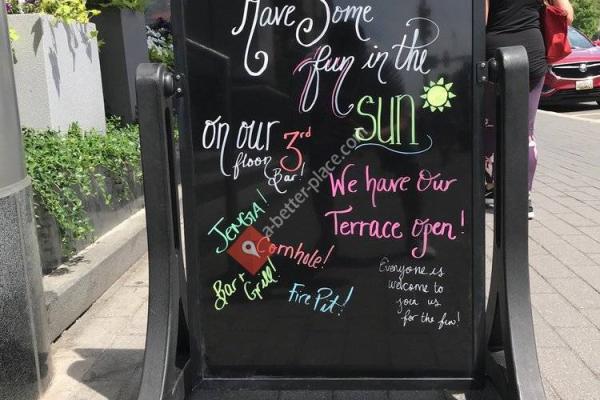 Have Some
fun in the
SUN
on our 3rd
floor Bar!
We have Our
Terrace open!
JENGA!
Cornhole!
Bar + Grill!
Fire Pit!
Everyone is
welcome to
join us
for the fun!
a-better-place.com